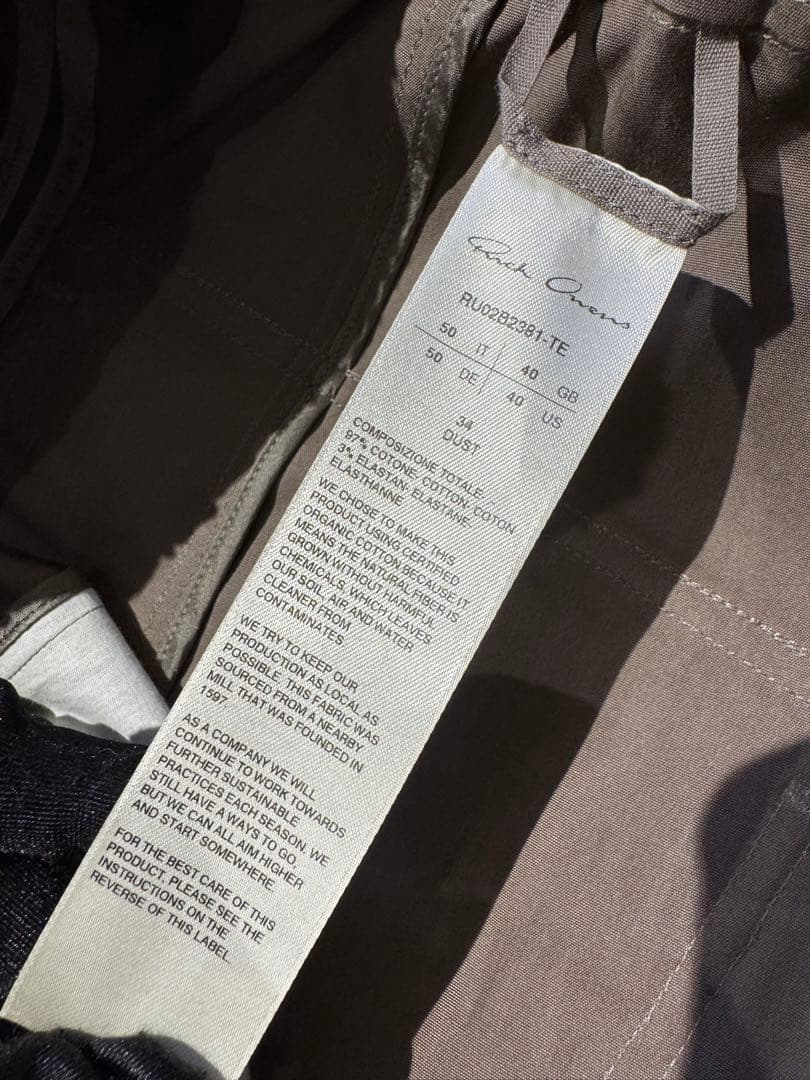 Rick Owens
RU02B2381-TE
50 IT 40 GB
50 DE 40 US
34
DUST
COMPOSIZIONE TOTALE
97% COTONE, COTTON, COTON
3% ELASTAN, ELASTANE,
ELASTHANNE
WE CHOSE TO MAKE THIS
PRODUCT USING CERTIFIED
ORGANIC COTTON BECAUSE IT
MEANS THE NATURAL FIBER IS
GROWN WITHOUT HARMFUL
CHEMICALS, WHICH LEAVES
OUR SOIL, AIR, AND WATER
CLEANER FROM
CONTAMINATES.
WE TRY TO KEEP OUR
PRODUCTION AS LOCAL AS
POSSIBLE. THIS FABRIC WAS
SOURCED FROM A NEARBY
MILL THAT WAS FOUNDED IN
1597.
AS A COMPANY WE WILL
CONTINUE TO WORK TOWARDS
FURTHER SUSTAINABLE
PRACTICES EACH SEASON. WE
STILL HAVE A WAYS TO GO,
BUT WE CAN ALL AIM HIGHER
AND START SOMEWHERE.
FOR THE BEST CARE OF THIS
PRODUCT. PLEASE SEE THE
INSTRUCTIONS ON THE
REVERSE OF THIS LABEL.